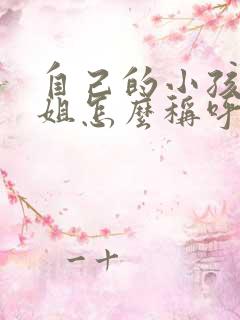 自己的小孩
姐怎麼稱呼
一十